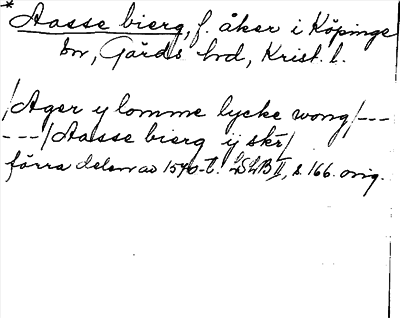 * Aasse bierg, f. åker i Köpinge
sn, Gärds hd, Krist. l.
/Ager y lomme lycke wong/---
---/Aasse bierg ij skr/
förra delen av 1540-t. LSLB II, s. 166. orig.